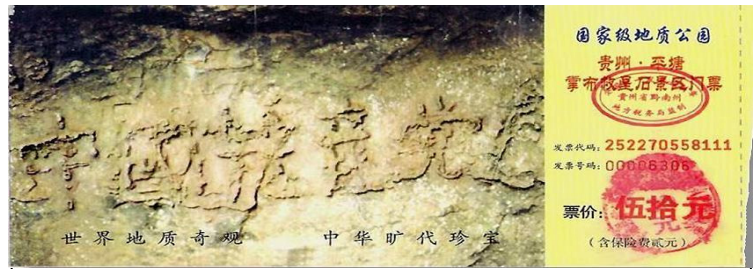 中國共产党
世界地质奇观 中华旷代珍宝
国家级地质公园
贵州·平塘
掌布救星石景区门票
贵州省黔南州
地方税务局监制
发票代码：252270558111
发票号码：
票价：伍拾元
（含保险费贰元）